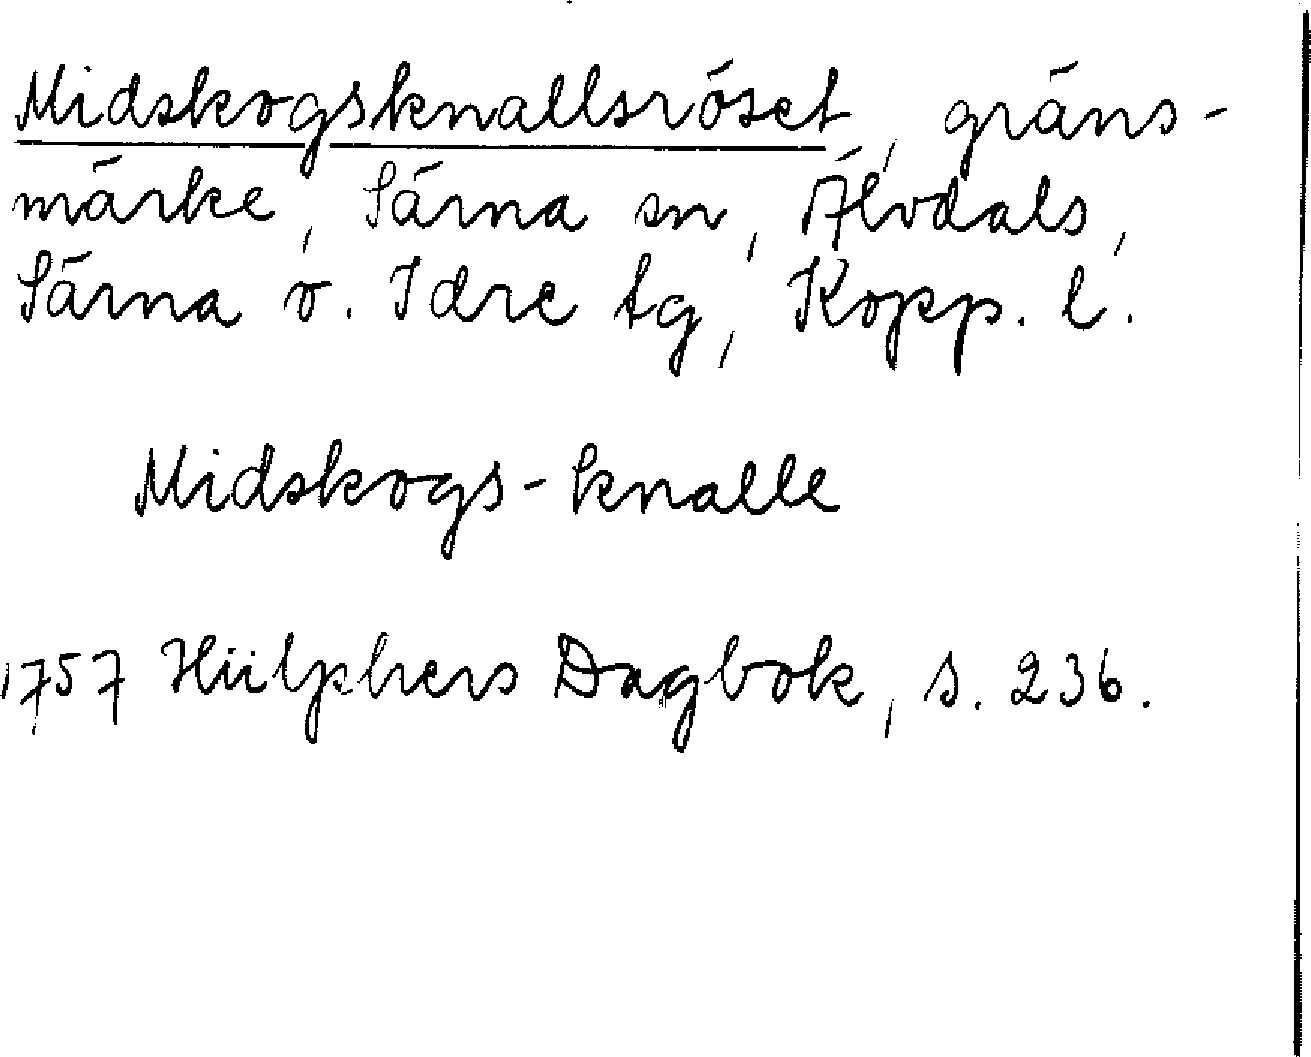 Midskogsknallsröset, gräns-
märke, Särna sn, Älvdals,
Särna o. Idre tg, Kopp. l.
Midskogs-knalle
1757 Hülphers Dagbok, s. 236.